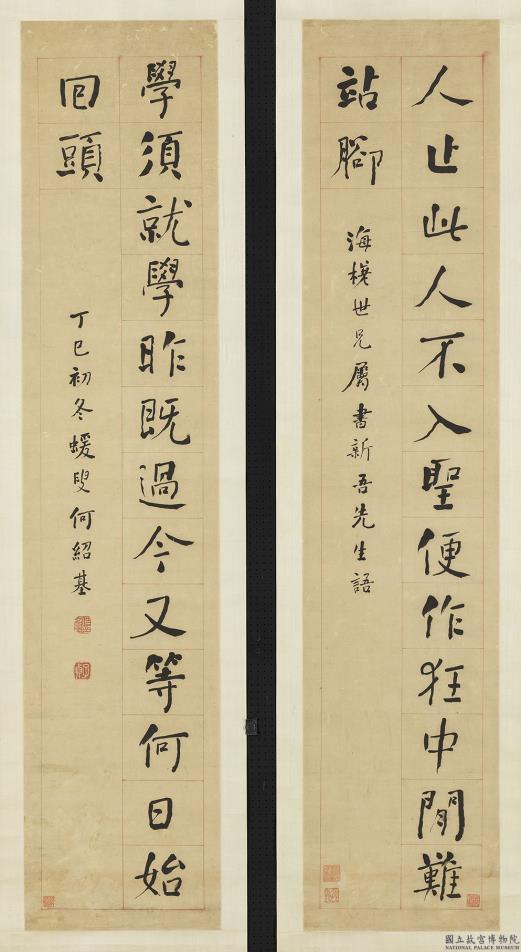 人止此人不入聖便作狂中閒難
站腳
海世兄屬書新吾先生語
學須就學昨既過今又等何日始
囘頭
丁巳初冬蝯叟何紹基
國立故宮博物院
NATIONAL PALACE MUSEUM